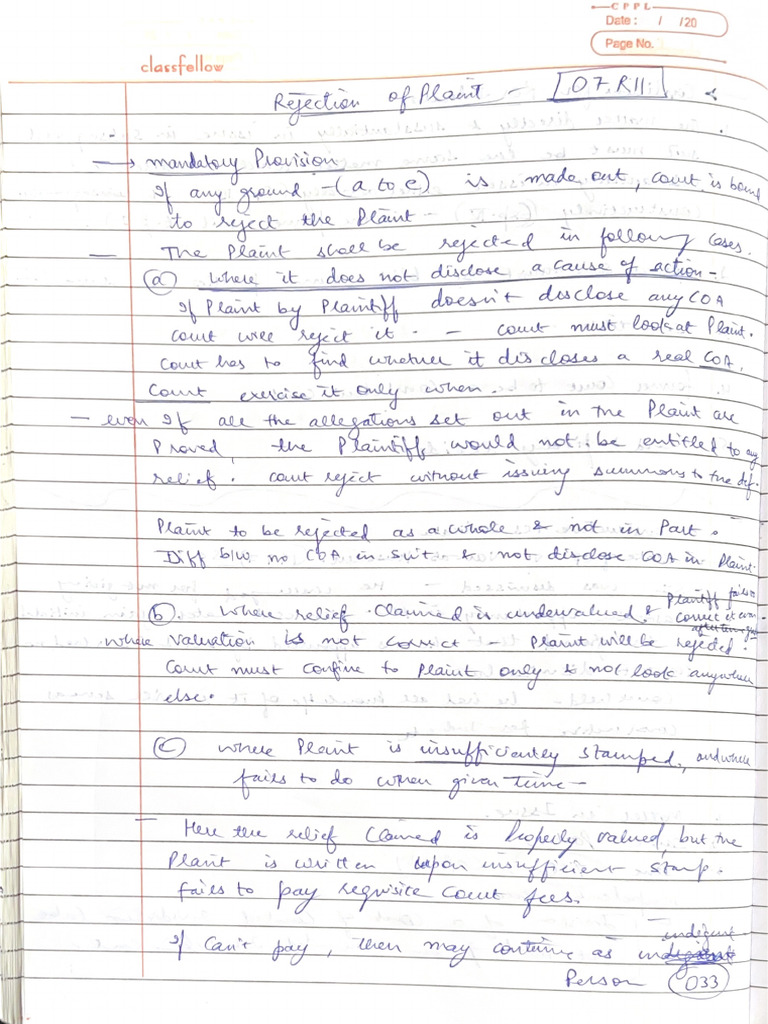 CPPL
Date : / /20
Page No.
classfellow
Rejection of Plaint - O7 R11
→ mandatory Provision
If any ground - (a to e) is made out, court is bound
to reject the Plaint
— The Plaint shall be rejected in following cases.
(a) where it does not disclose a cause of action -
If Plaint by Plaintiff doesn't disclose any COA
court will reject it. - court must look at Plaint.
Court has to find whether it discloses a real COA.
Court exercise it only when.
- even If all the allegations set out in the Plaint are
Proved, the Plaintiff would not be entitled to any
relief. court reject without issuing summons to the def.
Plaint to be rejected as a whole & not in Part.
Diff b/w no COA in Suit & not disclose COA in Plaint.
(b). Where relief claimed is undervalued & Plaintiff fails to
correct it even
where valuation is not correct - Plaint will be rejected.
Court must confine to Plaint only & not look anywhere
else.
(c) where Plaint is insufficiently stamped, and where
fails to do when given time -
— Here the relief claimed is properly valued, but the
Plaint is written upon insufficient stamp.
fails to pay requisite court fees.
If Can't pay, then may continue as
Person
033